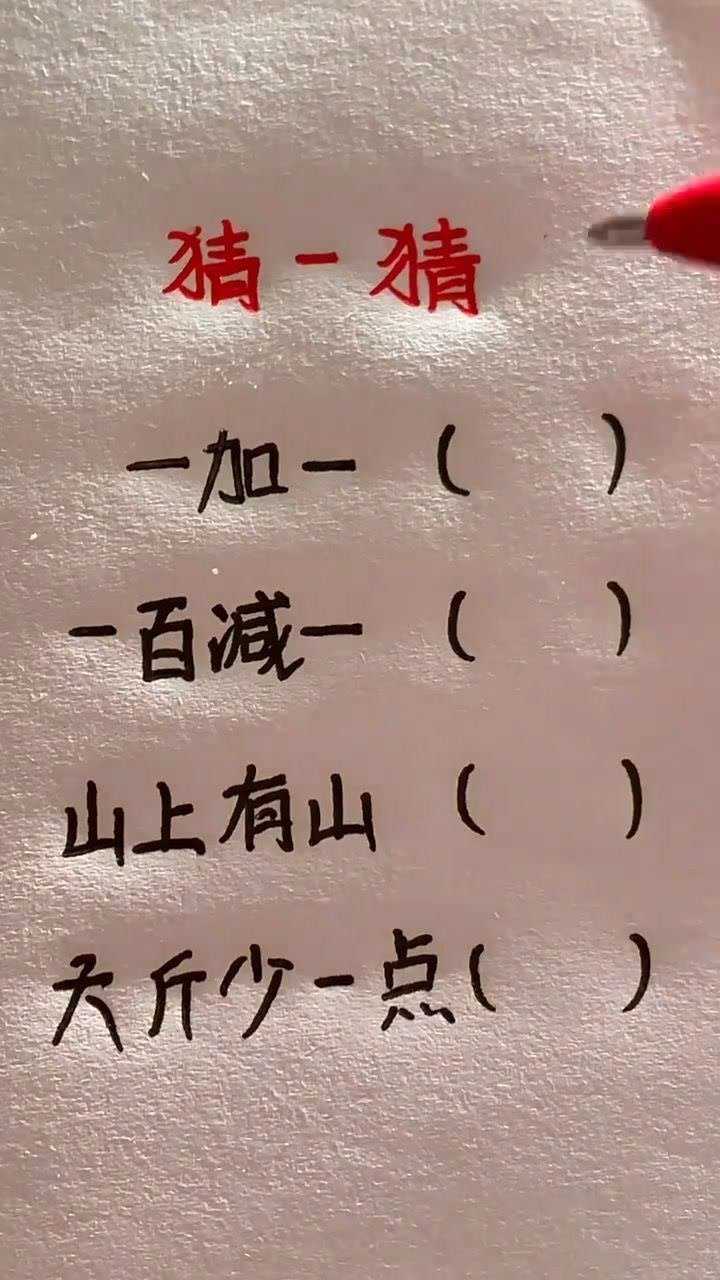 猜一猜
一加一（ ）
一百减一（ ）
山上有山（ ）
天斤少一点（ ）